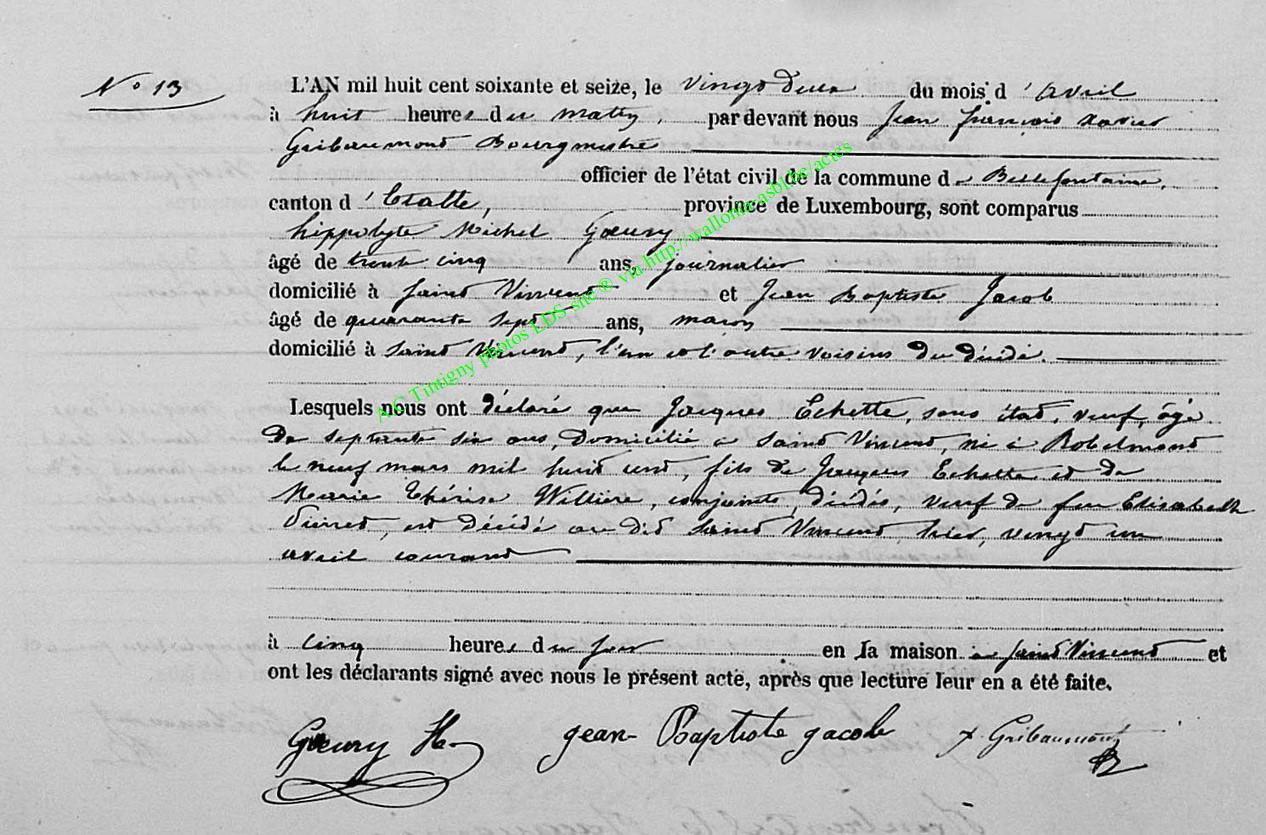 N° 13
L'AN mil huit cent soixante et seize, le vingt deux du mois d'avril
à huit heures du matin, pardevant nous Jean François Xavier
Gribaumont Bourgmestre
officier de l'état civil de la commune de Bellefontaine,
canton d'Etalle, province de Luxembourg, sont comparus
hippolyte Michel Goeury
âgé de trent cinq ans, journalier
domicilié à Saint Vincent et Jean Baptiste Jacob
âgé de quarante sept ans, maçon
domicilié à Saint Vincent, l'un et l'autre voisins du décédé.
Lesquels nous ont déclaré que Jacques Echette, sans état, veuf, âgé
de septante six ans, domicilié à Saint Vincent, né à Robelmont
le neuf mars mil huit cent, fils de Jacques Echette et de
Marie Thérèse Willième, conjoints, décédés, veuf de feu Elisabeth
est décédé au dit Saint Vincent, hier, vingt un
avril courant
à cinq heures du soir en la maison à Saint Vincent et
ont les déclarants signé avec nous le présent acte, après que lecture leur en a été faite.
Goeury H. Jean Baptiste Jacob X. Gribaumont
AC Tintigny photos LDS site ® via http://wallonicasblbe/actes